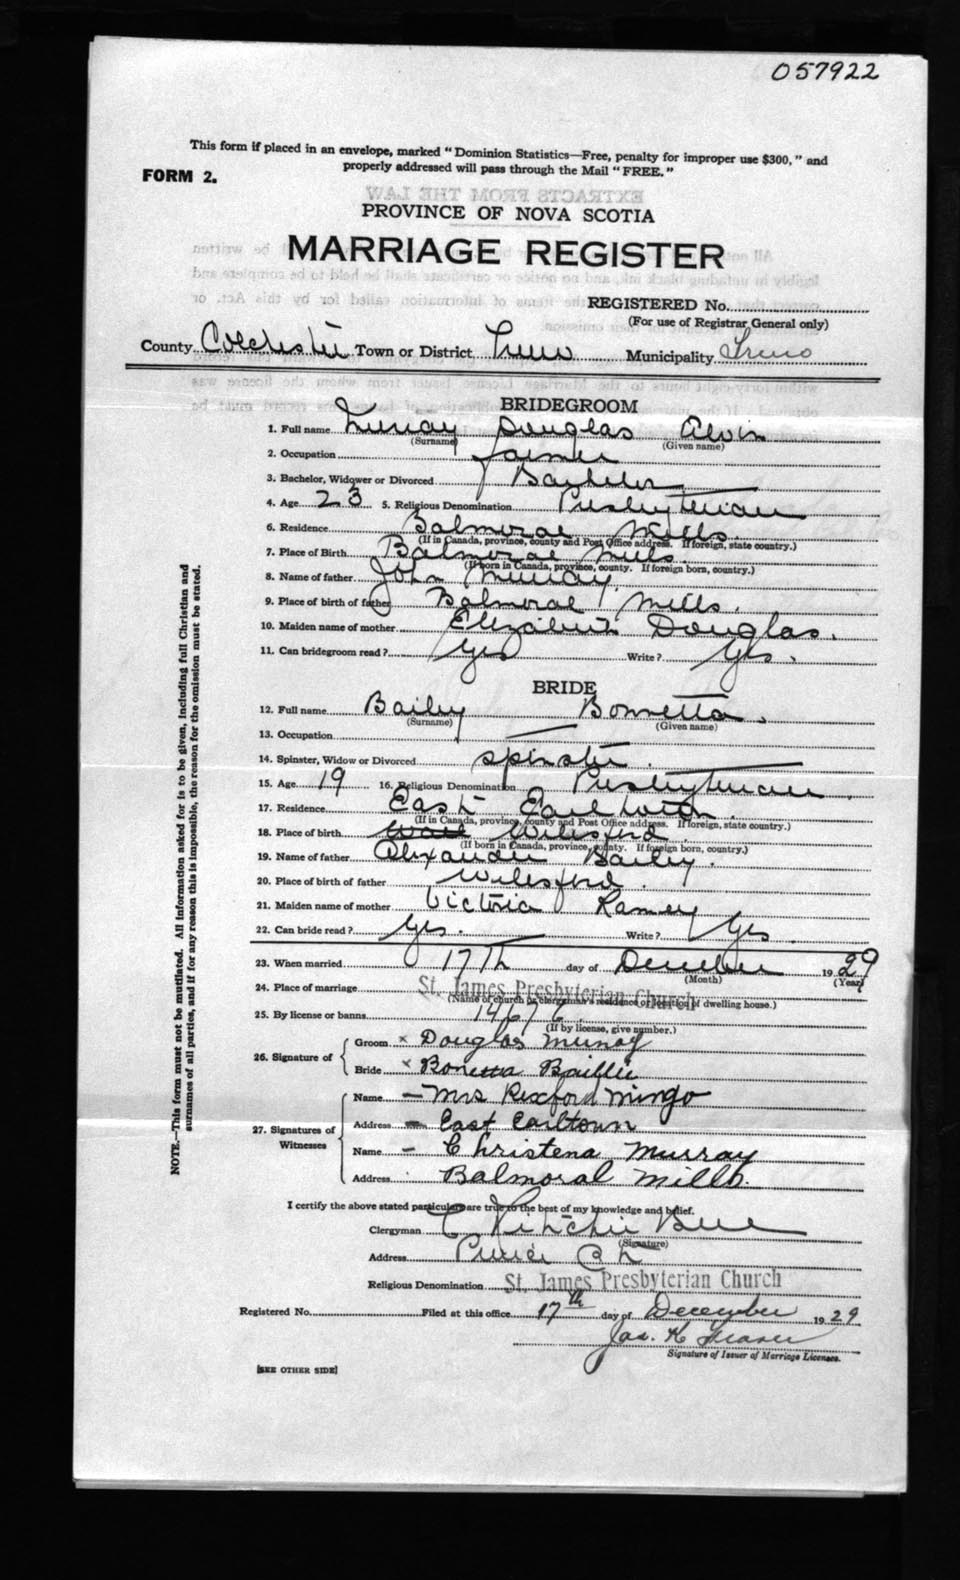 057922
This form if placed in an envelope, marked “Dominion Statistics—Free, penalty for improper use $300,” and
properly addressed will pass through the Mail “FREE.”
FORM 2.
EXTRACTS FROM THE LAW
PROVINCE OF NOVA SCOTIA
MARRIAGE REGISTER
REGISTERED No.
(For use of Registrar General only)
County Colchester Town or District Truro Municipality Truro
BRIDEGROOM
1. Full name Murray Douglas Alvin
(Surname) (Given name)
2. Occupation farmer
3. Bachelor, Widower or Divorced Bachelor
4. Age 23 5. Religious Denomination Presbyterian
6. Residence Balmoral Mills.
(If in Canada, province, county and Post Office address. If foreign, state country.)
7. Place of Birth Balmoral Mills.
(If born in Canada, province, county. If foreign born, country.)
8. Name of father John Murray.
9. Place of birth of father Balmoral Mills.
10. Maiden name of mother Elizabeth Douglas.
11. Can bridegroom read? Yes Write? Yes.
BRIDE
12. Full name Bailey Bonnetta.
(Surname) (Given name)
13. Occupation —
14. Spinster, Widow or Divorced spinster.
15. Age 19 16. Religious Denomination Presbyterian.
17. Residence East Earltown.
(If in Canada, province, county and Post Office address. If foreign, state country.)
18. Place of birth Wilesford.
(If born in Canada, province, county. If foreign born, country.)
19. Name of father Alexander Bailey.
20. Place of birth of father Wilesford.
21. Maiden name of mother Victoria Ramey
22. Can bride read? Yes. Write? Yes.
23. When married 17th day of December 1929
(Month) (Year)
24. Place of marriage St. James Presbyterian Church
(Name of church or clergyman's residence or location of dwelling house.)
25. By license or banns 14676.
(If by license, give number.)
26. Signature of Groom x Douglas Murray
Bride x Bonetta Baillie
27. Signatures of Witnesses Name – Mrs Rexford Mingo
Address – East Earltown
Name – Christena Murray
Address Balmoral Mills.
I certify the above stated particulars are true to the best of my knowledge and belief.
Clergyman C Ritchie Bell
(Signature)
Address
Religious Denomination St. James Presbyterian Church
Registered No. Filed at this office 17th day of December 1929
Jas. K Fraser
Signature of Issuer of Marriage Licenses.
[SEE OTHER SIDE]
NOTE.—This form must not be mutilated. All information asked for is to be given, including full Christian and
surnames of all parties, and if for any reason this is impossible, the reason for the omission must be stated.